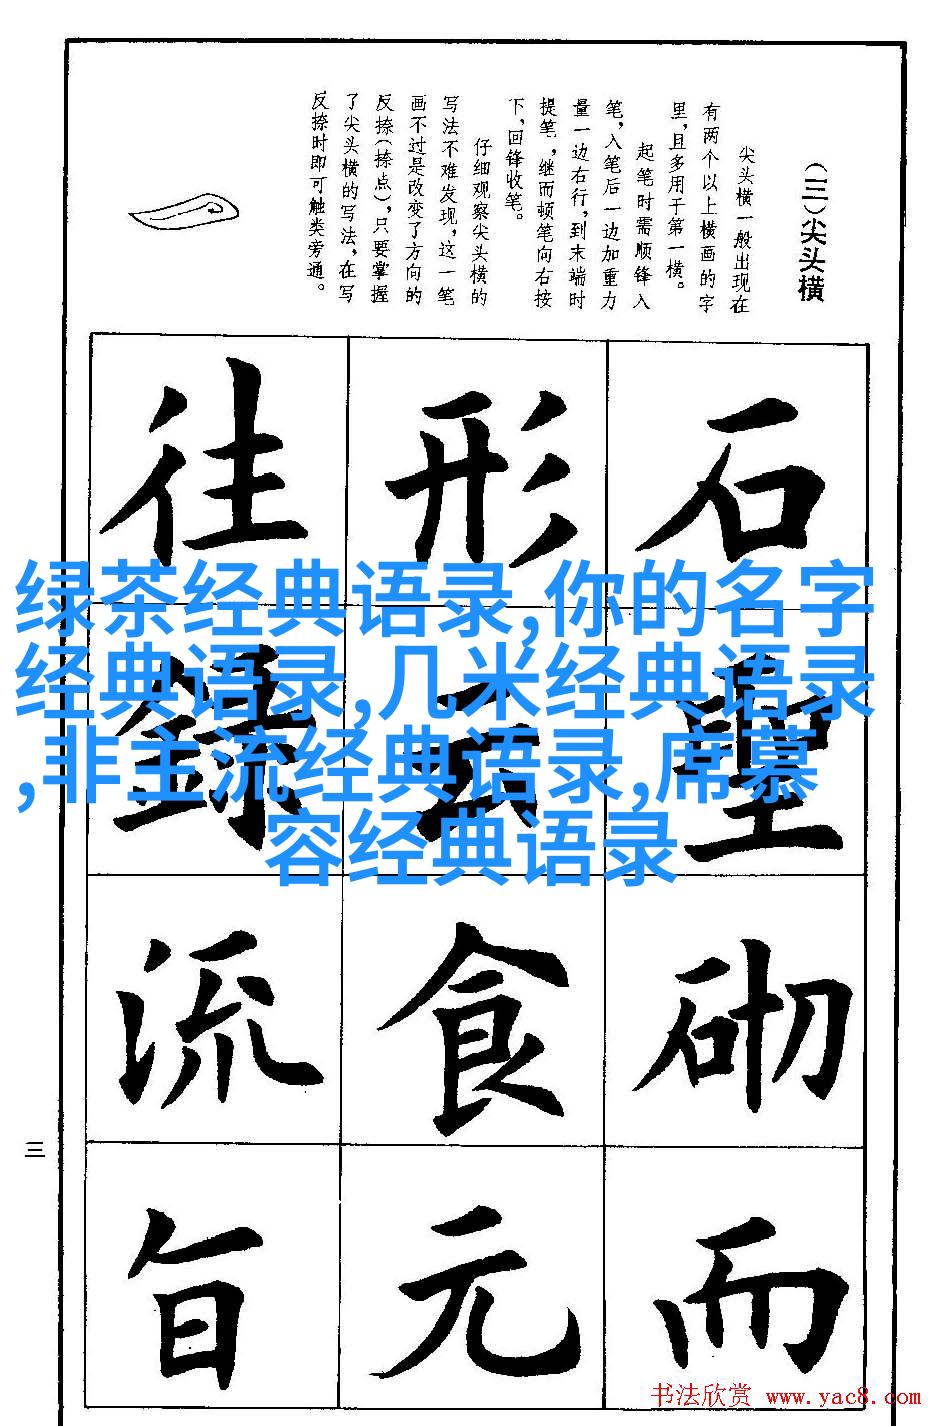 （三）尖头横
尖头横一般出现在
有两个以上横画的字
里,且多用于第一横。
起笔时需顺锋入
笔,入笔后一边加重力
量一边右行,到末端时
提笔,继而顿笔向右按
下,回锋收笔。
仔细观察尖头横的
写法不难发现,这一笔
画不过是改变了方向的
反捺(捺点),只要掌握
了尖头横的写法,在写
反捺时即可触类旁通。
石聖砌而
形云食元
往録流旨
绿茶经典语录,你的名字
经典语录,几米经典语录
,非主流经典语录,席慕
容经典语录
三
书法欣赏 www.yac8.com